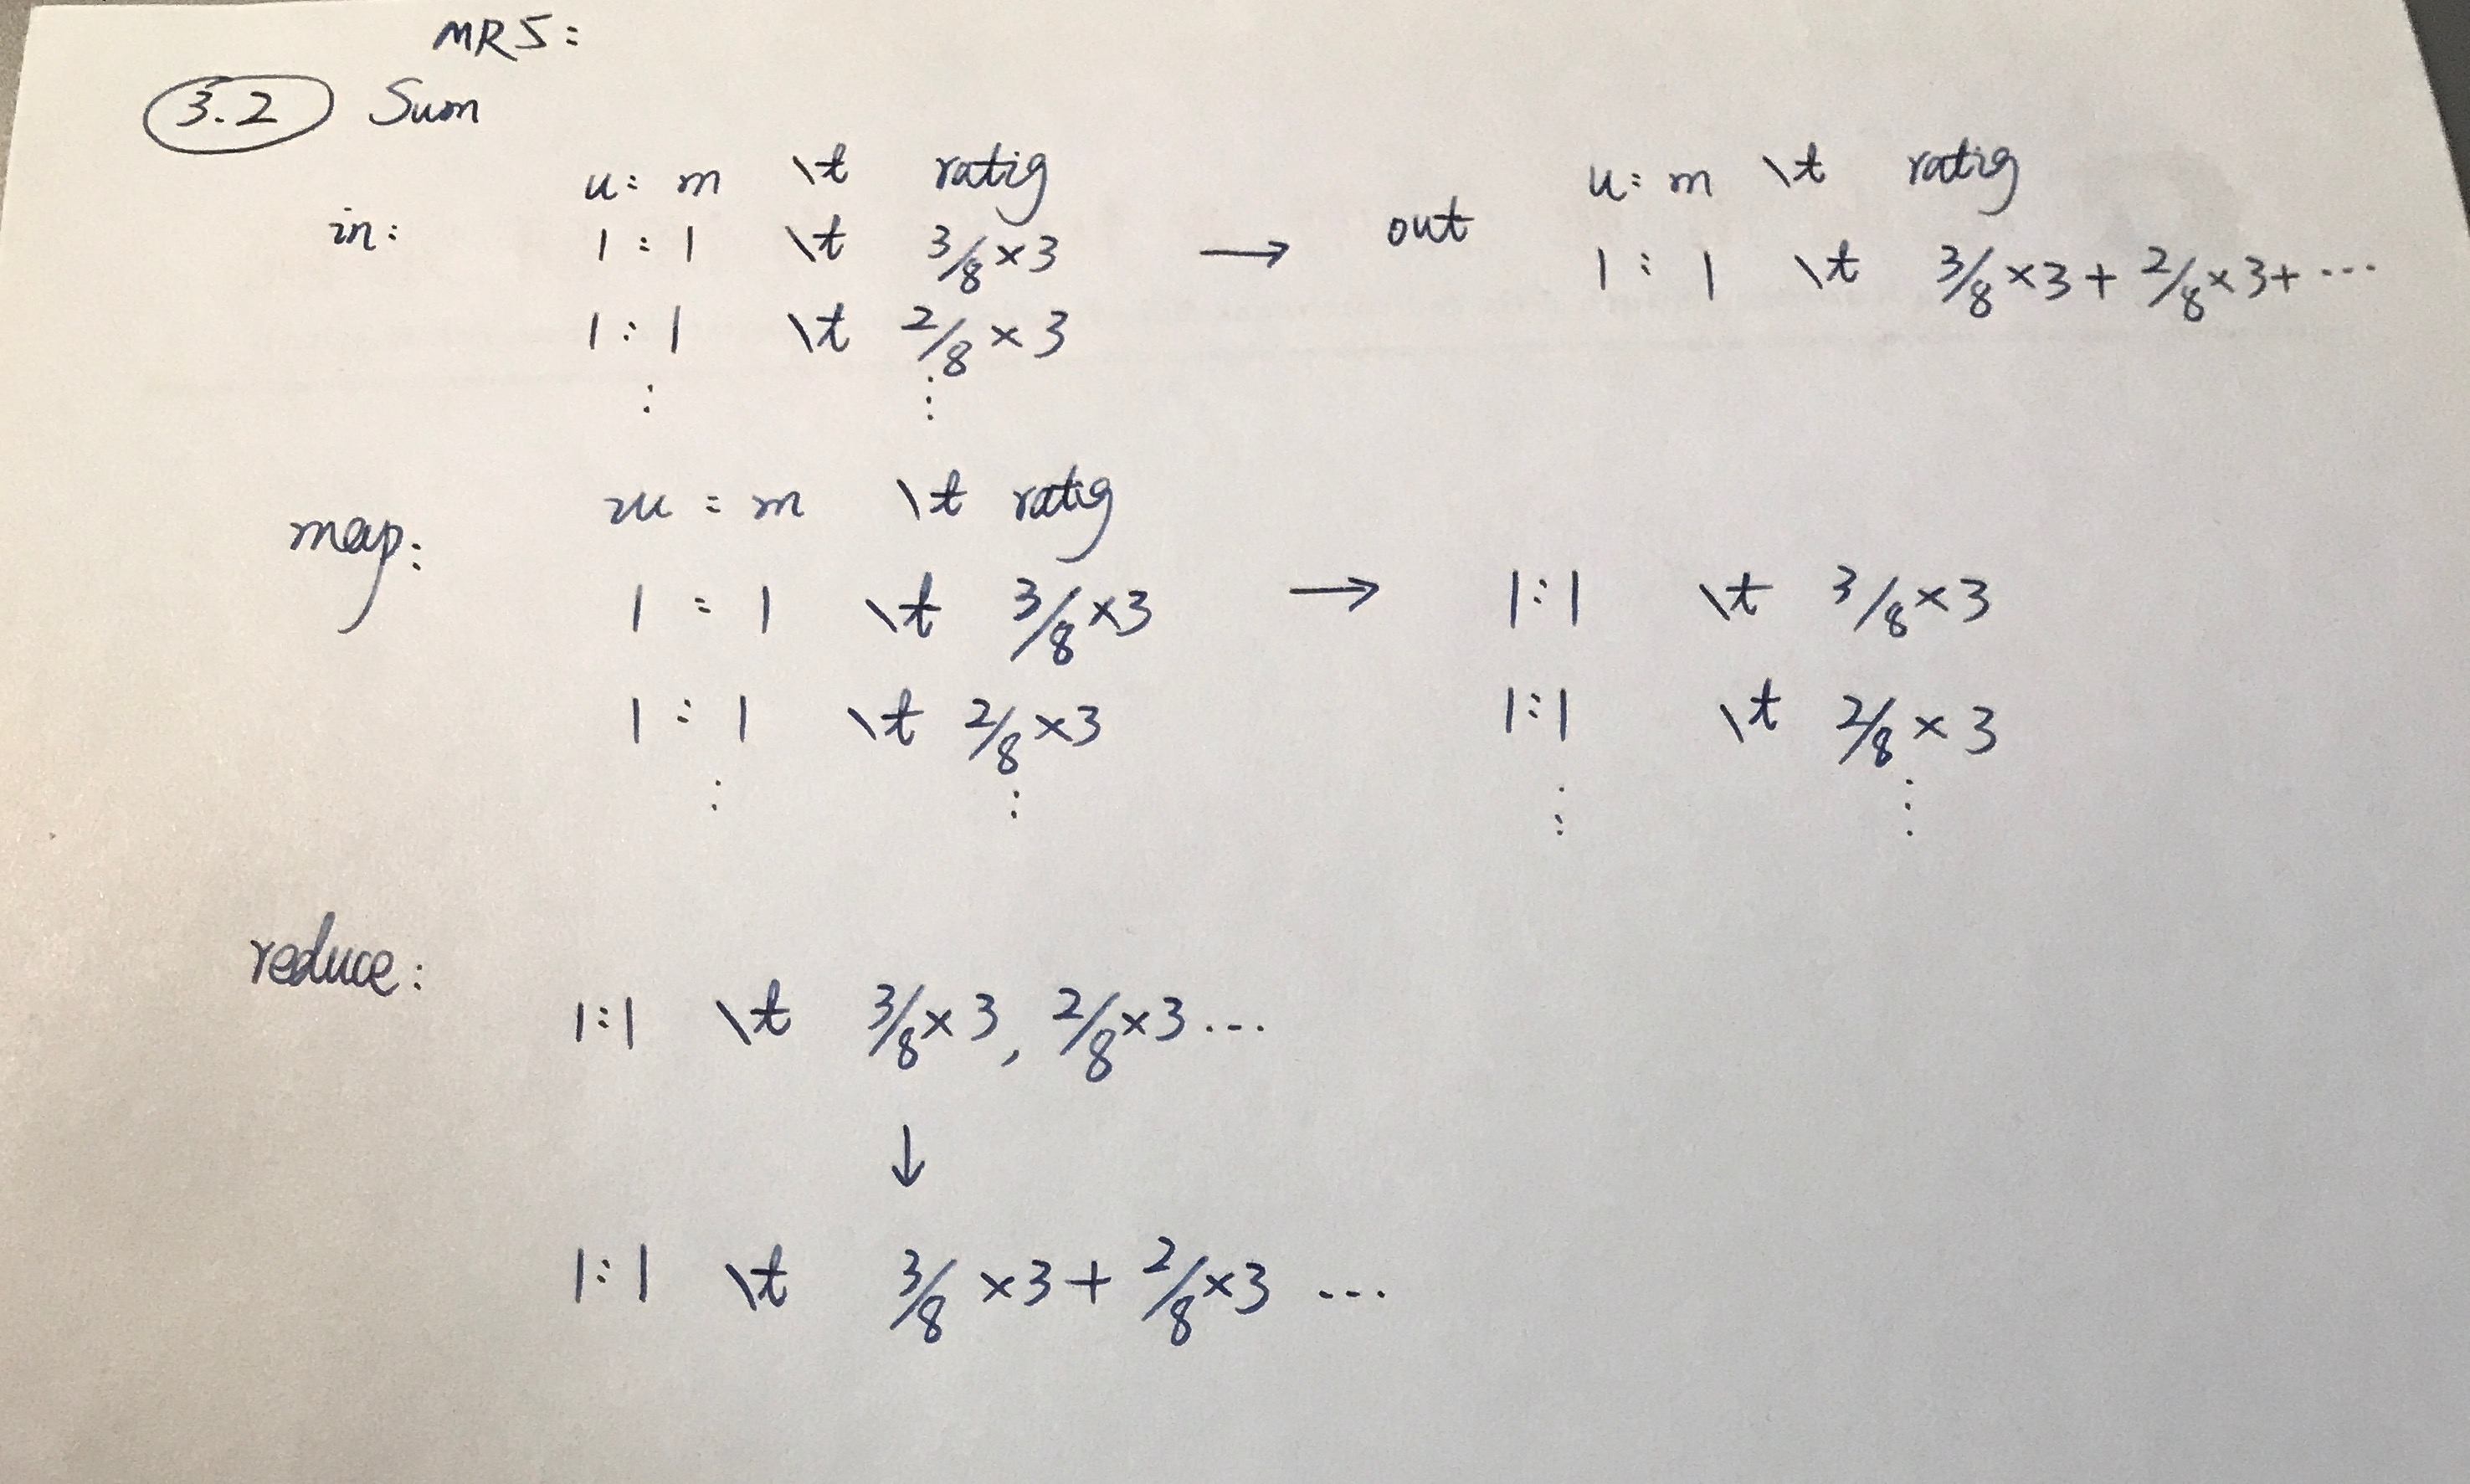 MR5:
3.2 Sum
in: u: m \t ratig
1 : 1 \t 3/8×3
1 : 1 \t 2/8×3
:
⋮
→
out u: m \t ratig
1 : 1 \t 3/8×3 + 2/8×3+ ...
map: u : m \t ratig
1 : 1 \t 3/8×3 → 1:1 \t 3/8×3
1 : 1 \t 2/8×3 1:1 \t 2/8×3
: : ⋮ ⋮
reduce:
1:1 \t 3/8×3, 2/8×3 ...
↓
1:1 \t 3/8×3+ 2/8×3 ...